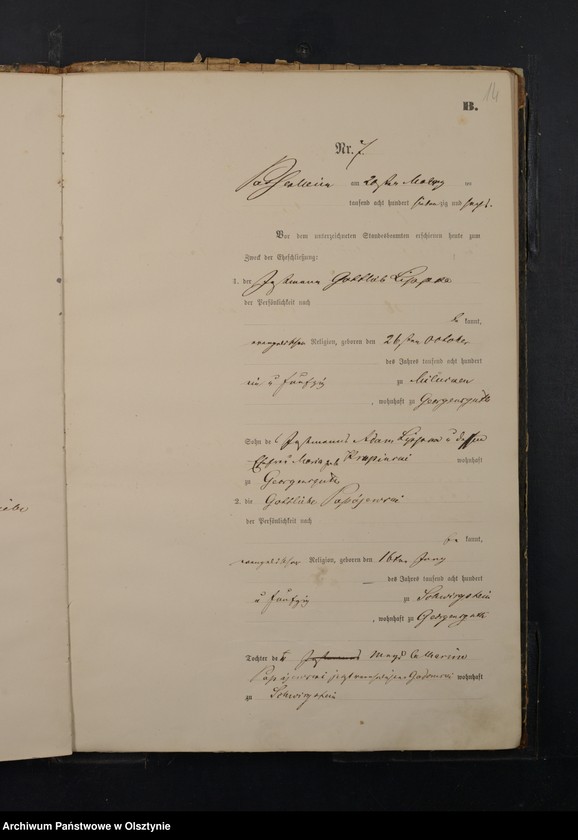 B. 14
Nr. 7.
am 20ten März
tausend acht hundert siebenzig und sechs.
Vor dem unterzeichneten Standesbeamten erschienen heute zum
Zweck der Eheschließung:
1. der Instmann Gottlieb
der Persönlichkeit nach
be kannt,
evangelischer Religion, geboren den 26sten October
des Jahres tausend acht hundert
ein u fünfzig zu
, wohnhaft zu Georgensguth
Sohn des Instmanns Adam u dessen
Ehefrau Maria geb wohnhaft
zu Georgensguth
2. die Gottliebe
der Persönlichkeit nach
be kannt,
evangelischer Religion, geboren den 16ten Juny
des Jahres tausend acht hundert
u fünfzig zu Schwirgstein
, wohnhaft zu Georgensguth
Tochter de Instmanns Magd Catharina
jetzt wohnhaft
zu Schwirgstein
Archiwum Państwowe w Olsztynie